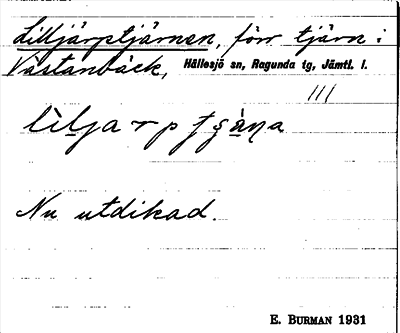 Lilljärpstjärnen, förr tjärn i
Västanbäck, Hällesjö sn, Ragunda tg, Jämtl. l.
111
Nu utdikad.
E. BURMAN 1931